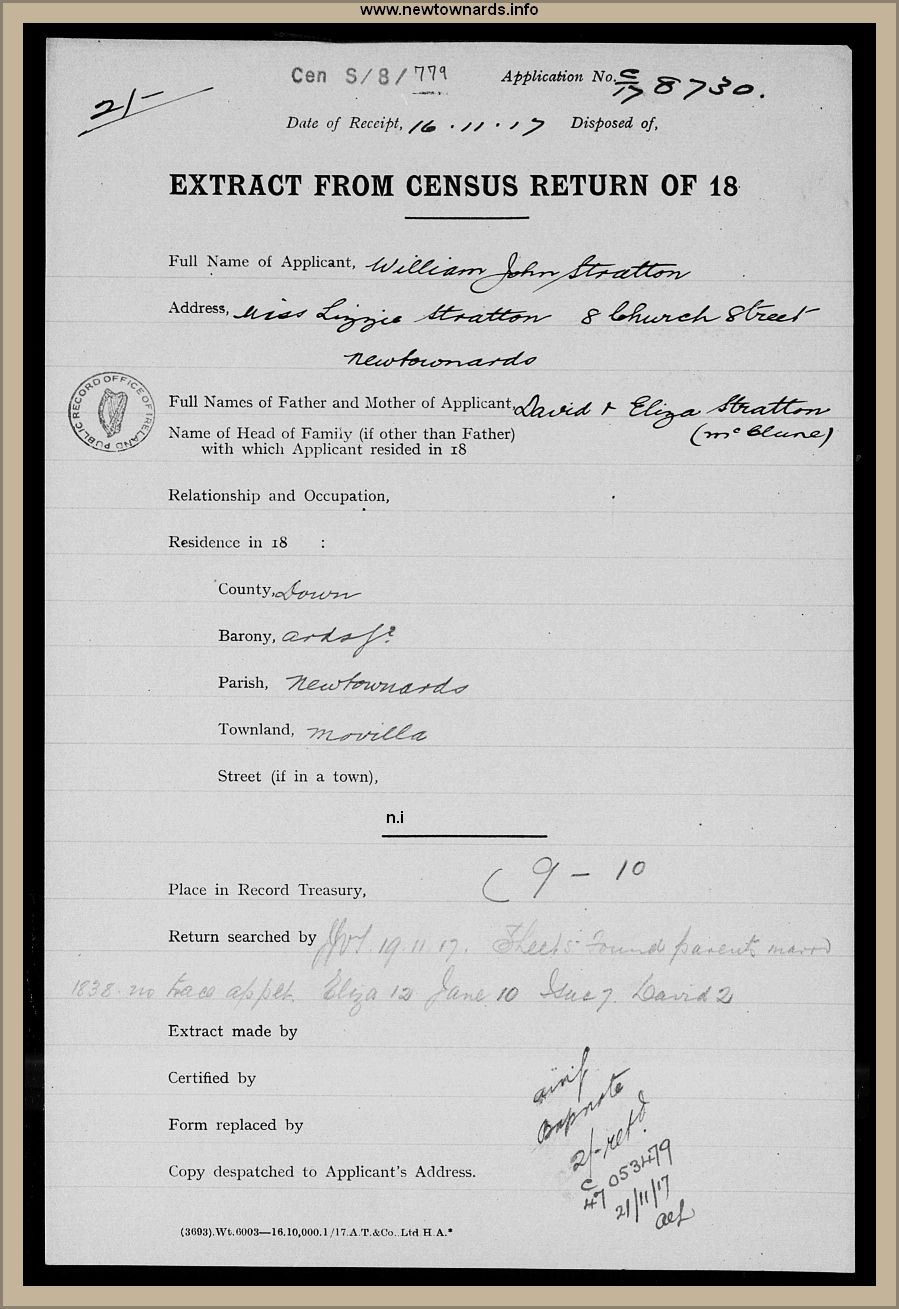 www.newtownards.info
Cen S/8/779 Application No. C/17 8730.
2/-
Date of Receipt, 16.11.17 Disposed of,
EXTRACT FROM CENSUS RETURN OF 18
Full Name of Applicant, William John Stratton
Address, Miss Lizzie Stratton 8 Church Street
Newtownards
PUBLIC RECORD OFFICE OF IRELAND
Full Names of Father and Mother of Applicant, David & Eliza Stratton
Name of Head of Family (if other than Father) (McClune)
with which Applicant resided in 18
Relationship and Occupation,
Residence in 18 :
County, Down
Barony, Ards
Parish, Newtownards
Townland, Movilla
Street (if in a town),
n.i
Place in Record Treasury, (9-10
Return searched by 19.11.17. Sheets found parents marrd
1838. no trace applct. Eliza 12 Jane 10 Isac 7. David 2
Extract made by
Certified by
Form replaced by
Copy despatched to Applicant's Address.
2/- retd.
C/47 053479
21/11/17
(3693).Wt.6003—16.10,000.1/17.A.T.&Co.,Ltd H.A.*